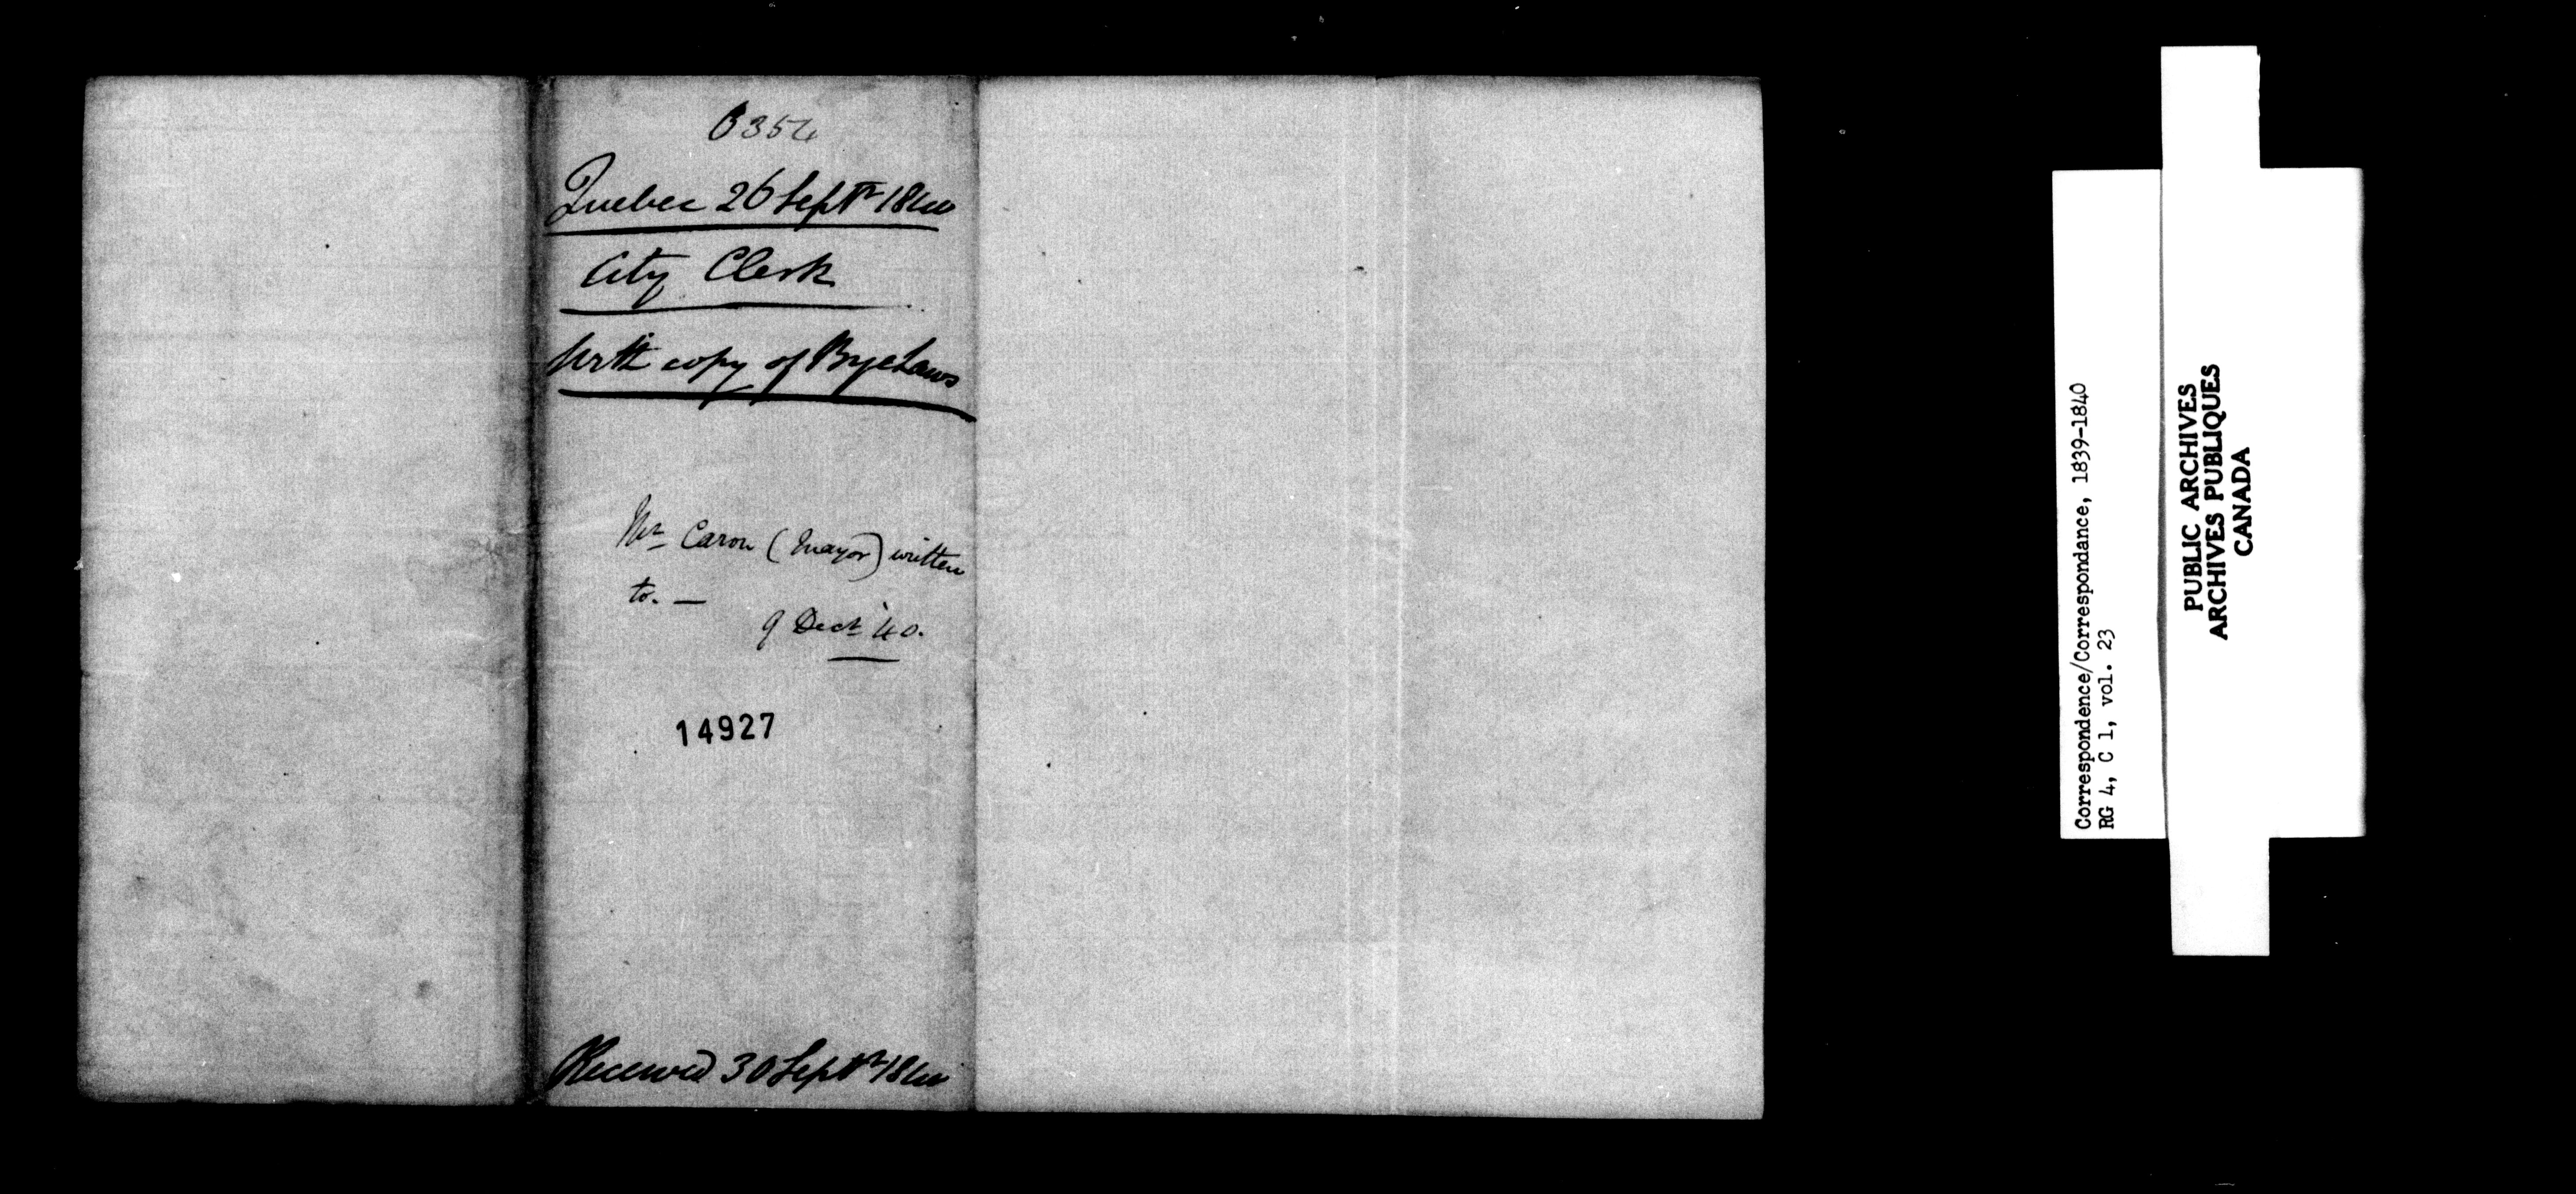 B 354
Quebec 26 Septr 1840
City Clerk
With copy of Bye Laws
Mr Caron (Mayor) written
to. —
9 Decr 40.
14927
Received 30 Septr 1840
Correspondence/Correspondance, 1839-1840
RG 4, C 1, vol. 23
PUBLIC ARCHIVES
ARCHIVES PUBLIQUES
CANADA